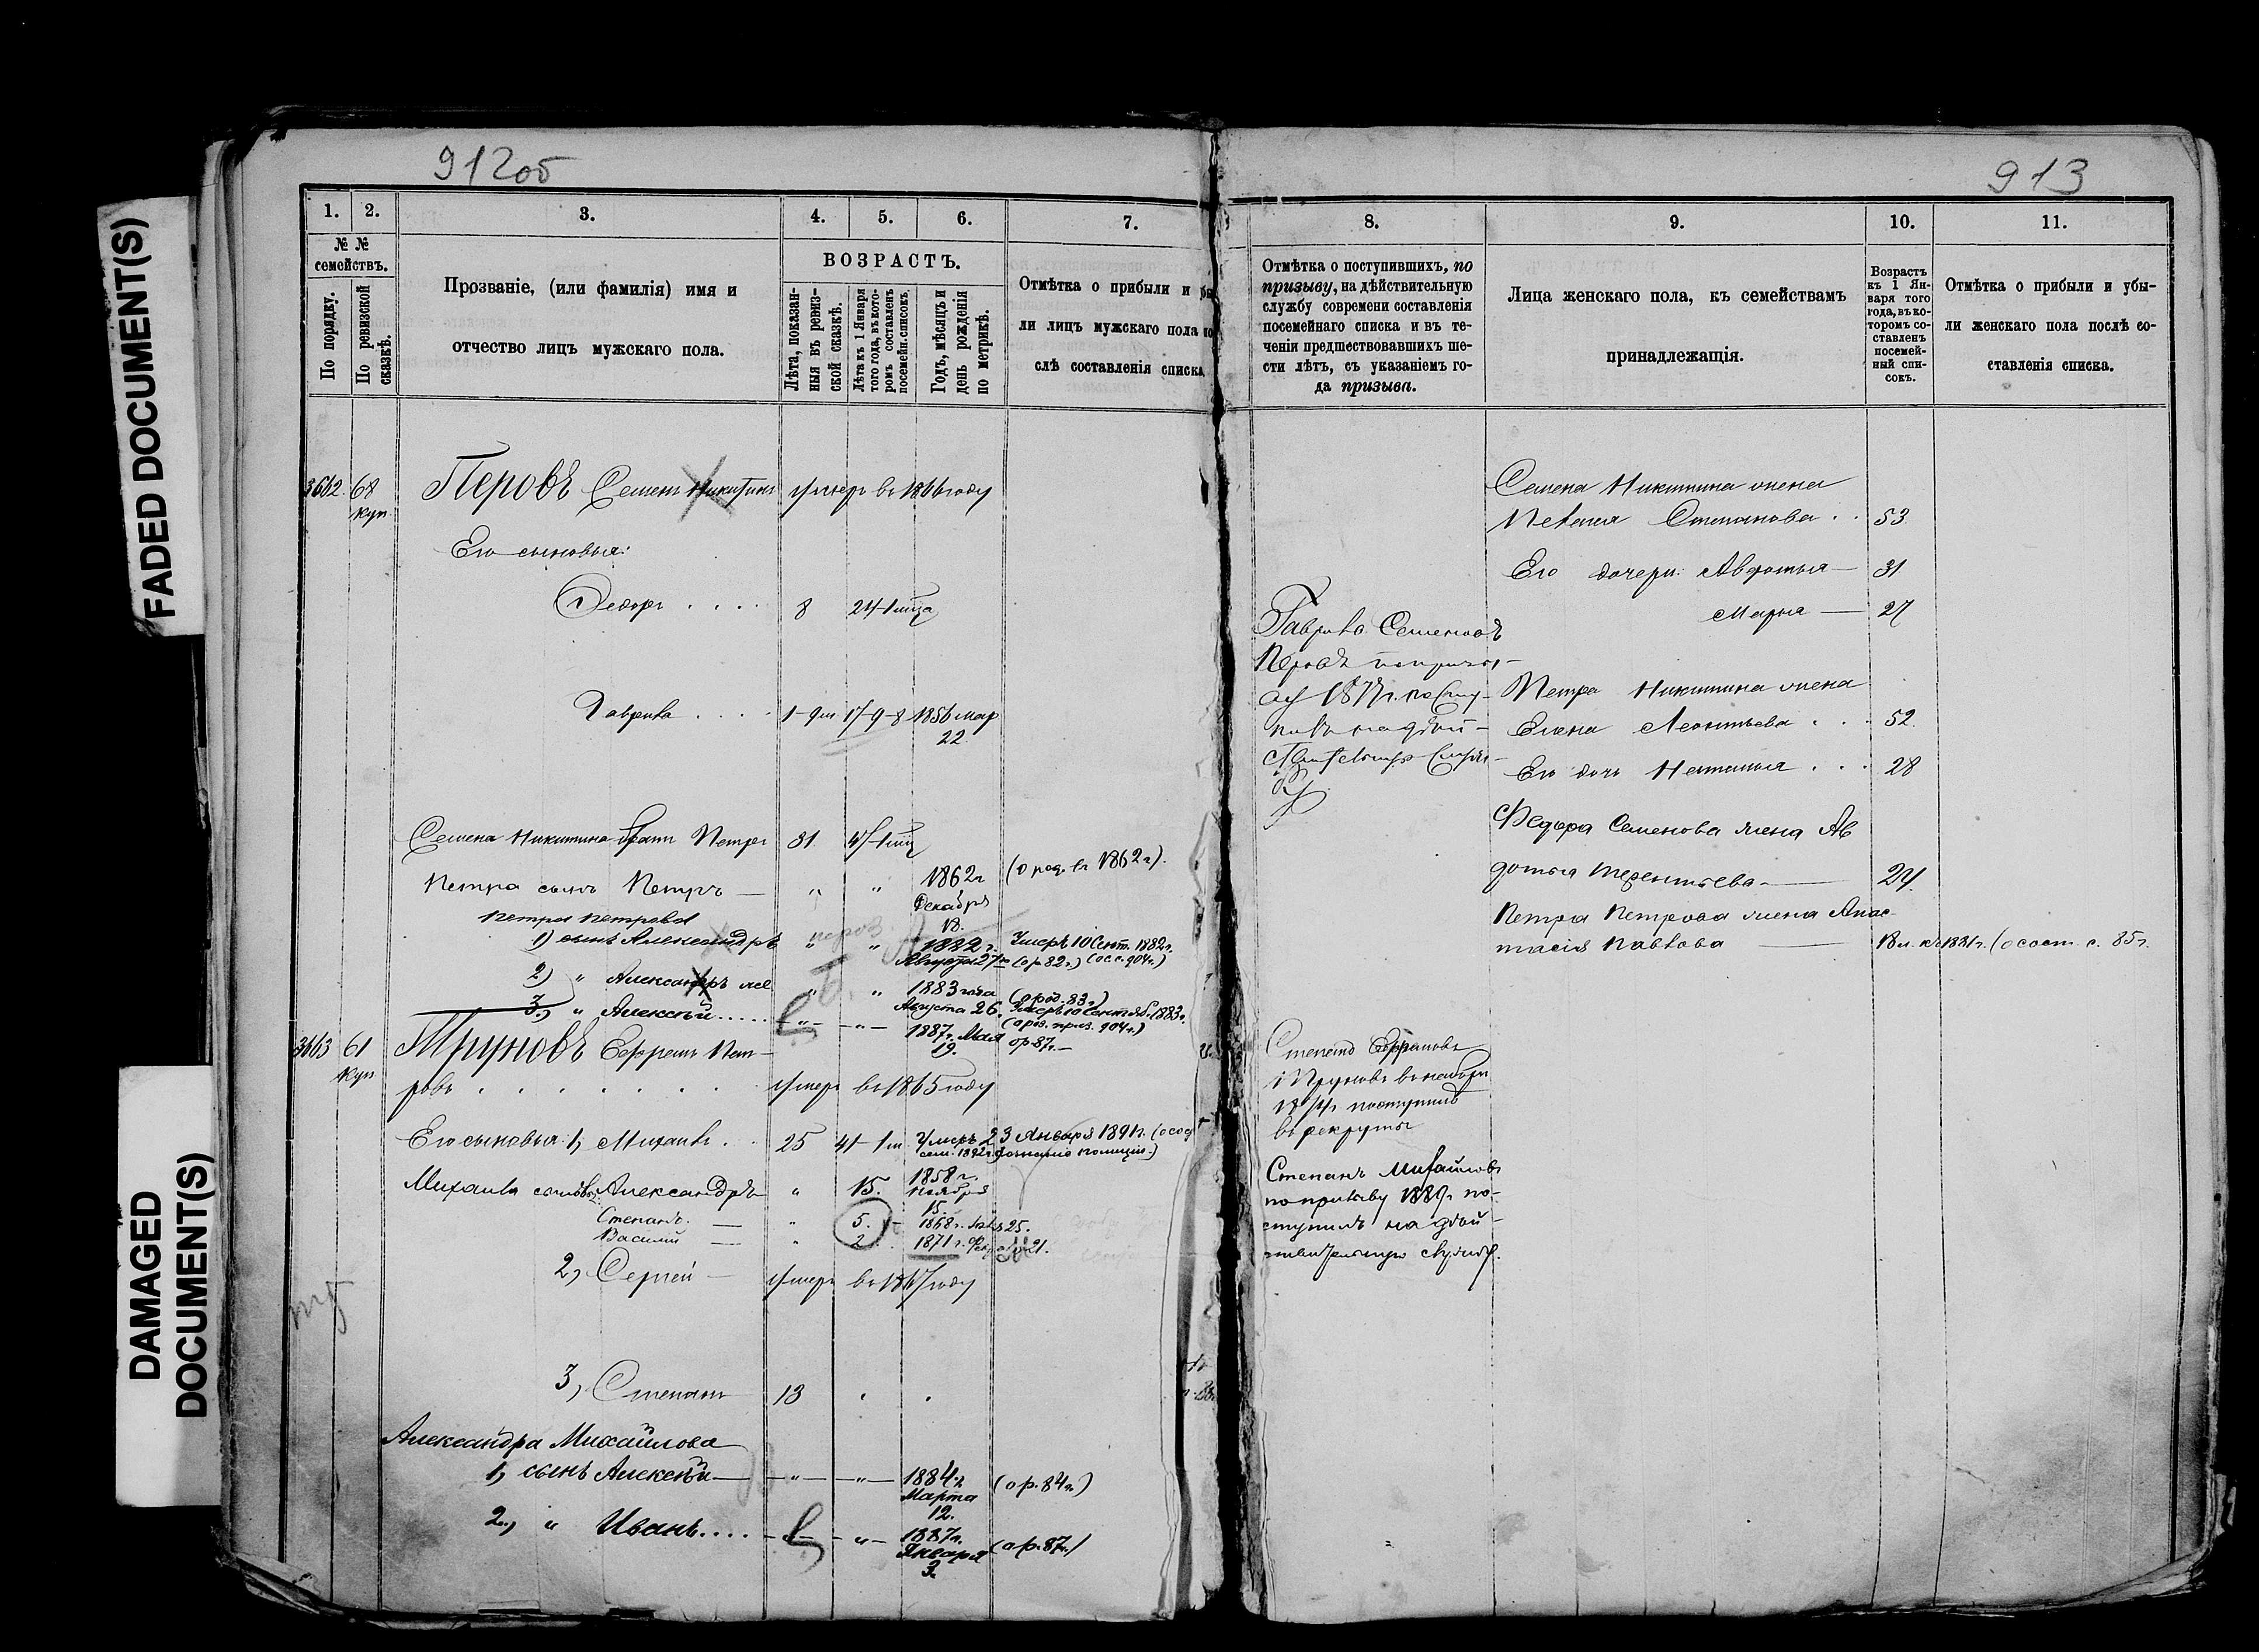 FADED DOCUMENT(S)
DAMAGED
DOCUMENT(S)
912об
1.
2.
3.
4.
5.
6.
7.
№ №
семействъ.
По порядку.
По ревизской
сказкѣ.
Прозваніе, (или фамилія) имя и
отчество лицъ мужскаго пола.
ВОЗРАСТЪ.
Лѣта, показан-
ныя въ ревиз-
ской сказкѣ.
Лѣта къ 1 Января
того года, въ кото-
ромъ составленъ
посемейн. списокъ.
Годъ, мѣсяцъ и
день рожденія
по метрикѣ.
Отмѣтка о прибыли и
ли лицъ мужскаго пола по
слѣ составленія списка
3662. 68
куп.
Перовъ Семенъ Никитинъ умеръ въ 1866 году
Его сыновья:
Федоръ . . . . 8 24-1 мца
Гаврило . . . . 1-9 м 17-9-8 1856 мар
22
Семена Никитина братъ Петръ 31. 47-1 мц
Петра сынъ Петръ — " " 1862 г. (о род. въ 1862 г.).
Декабрь
18.
Петра Петрова
1) сынъ Александръ " " 1882 г. Умеръ 10 Сент. 1882 г.
Августа 27 (о р. 82 г.) (ос. с. 904 г.)
2) " Александръ " " 1883 года (о род. 83 г.)
Августа 26. Умеръ 10 Сентяб. 1883 г.
3) " Алексѣй . . . . . — " — — " — 1887 г. Мая о р. 87 г. —
19.
(о роз. приз. 904 г.)
3663 61
куп
Труновъ Ефремъ Пет-
ровъ . . . . . . . умеръ въ 1865 году
Его сыновья: 1) Михаилъ . . 25 41-1 м. Умеръ 23 Января 1891 г.
сем. 1892 г. дознаніе полиціи.)
Михаила сыновья: Александръ " 15. 1858 г.
Ноября
15.
Степанъ. — " 5. — 1868 г. 25.
Василій — " 2. 1871 г. 21.
2) Сергѣй — умеръ въ 1867 году
3) Степанъ 13
Александра Михайлова
1) сынъ Алексѣй — " — — " — 1884 г. (о р. 84 г.)
Марта
12.
2) " Иванъ . . . . — " — 1887 г. (о р. 87 г.)
Января
3.
913
8.
9.
10.
11.
Отмѣтка о поступившихъ, по
призыву, на дѣйствительную
службу современи составленія
посемейнаго списка и въ те-
ченіи предшествовавшихъ ше-
сти лѣтъ, съ указаніемъ го-
да призыва.
Лица женскаго пола, къ семействамъ
принадлежащія.
Возрастъ
къ 1 Ян-
варя того
года, въ ко-
торомъ со-
ставленъ
посемей-
ный спи-
сокъ.
Отмѣтка о прибыли и убы-
ли женскаго пола послѣ со-
ставленія списка.
Гаврило Семеновъ
Перовъ по призы-
ву 1877 г. посту-
пилъ на дѣй-
ствительную служ-
бу
Степанъ Ефремовъ
Труновъ въ наборъ
поступилъ
въ рекруты
Степанъ Михайловъ
по призыву 1889 г. по-
ступилъ на дѣй-
ствительную службу.
Семена Никитина жена
Пелагея Степанова . . 53.
Его дочери: Авдотья — 31
Марья — 27
Петра Никитина жена
Елена Леонтьева . . . 52.
Его дочь Наталья . . . 28
Федора Семенова жена Ав
дотья Терентьева — 24.
Петра Петрова жена Анас-
тасія Павлова — 18 л. къ 1881 г. (о сост. с. 85 г.